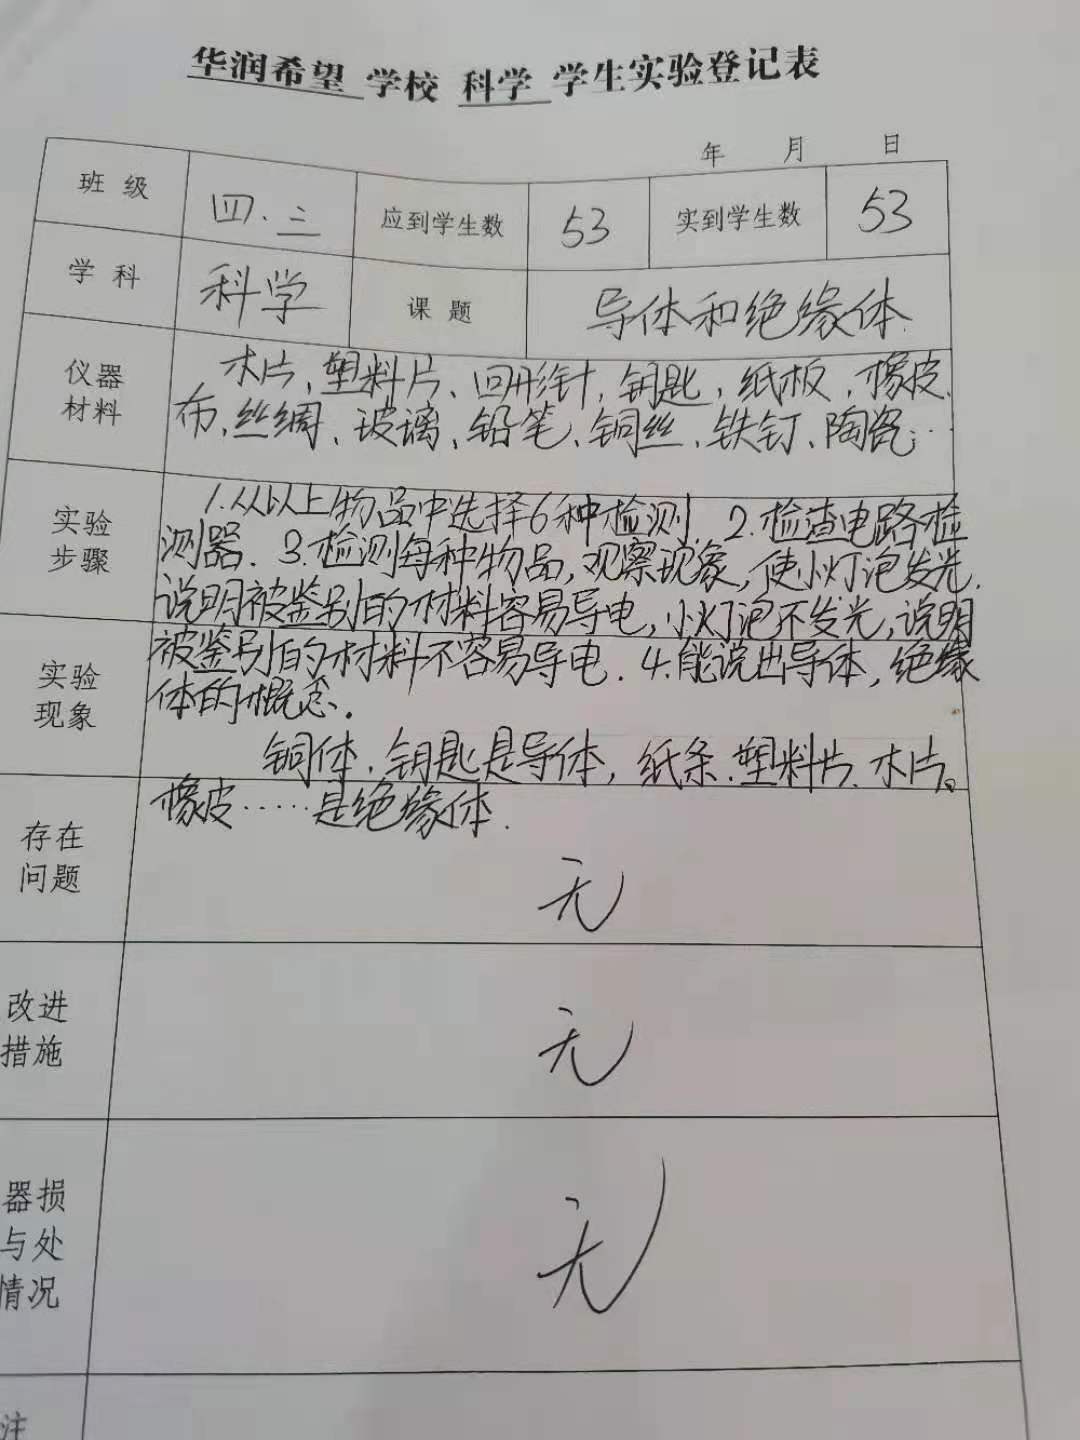 华润希望 学校 科学 学生实验登记表
年 月 日
班级 四.三 应到学生数 53 实到学生数 53
学科 科学 课题 导体和绝缘体.
仪器材料
木片、塑料片、回形针、钥匙、纸板、橡皮、
布、丝绸、玻璃、铅笔、铜丝、铁钉、陶瓷……
实验步骤
1.从以上物品中选择6种检测. 2.检查电路检
测器. 3.检测每种物品,观察现象,使小灯泡发光.
说明被鉴别的材料容易导电,小灯泡不发光,说明
实验现象
被鉴别的材料不容易导电. 4.能说出导体,绝缘
体的概念.
铜体.钥匙是导体,纸条.塑料片.木片。
橡皮……是绝缘体.
存在问题
无
改进措施
无
器损
与处
情况
无
注